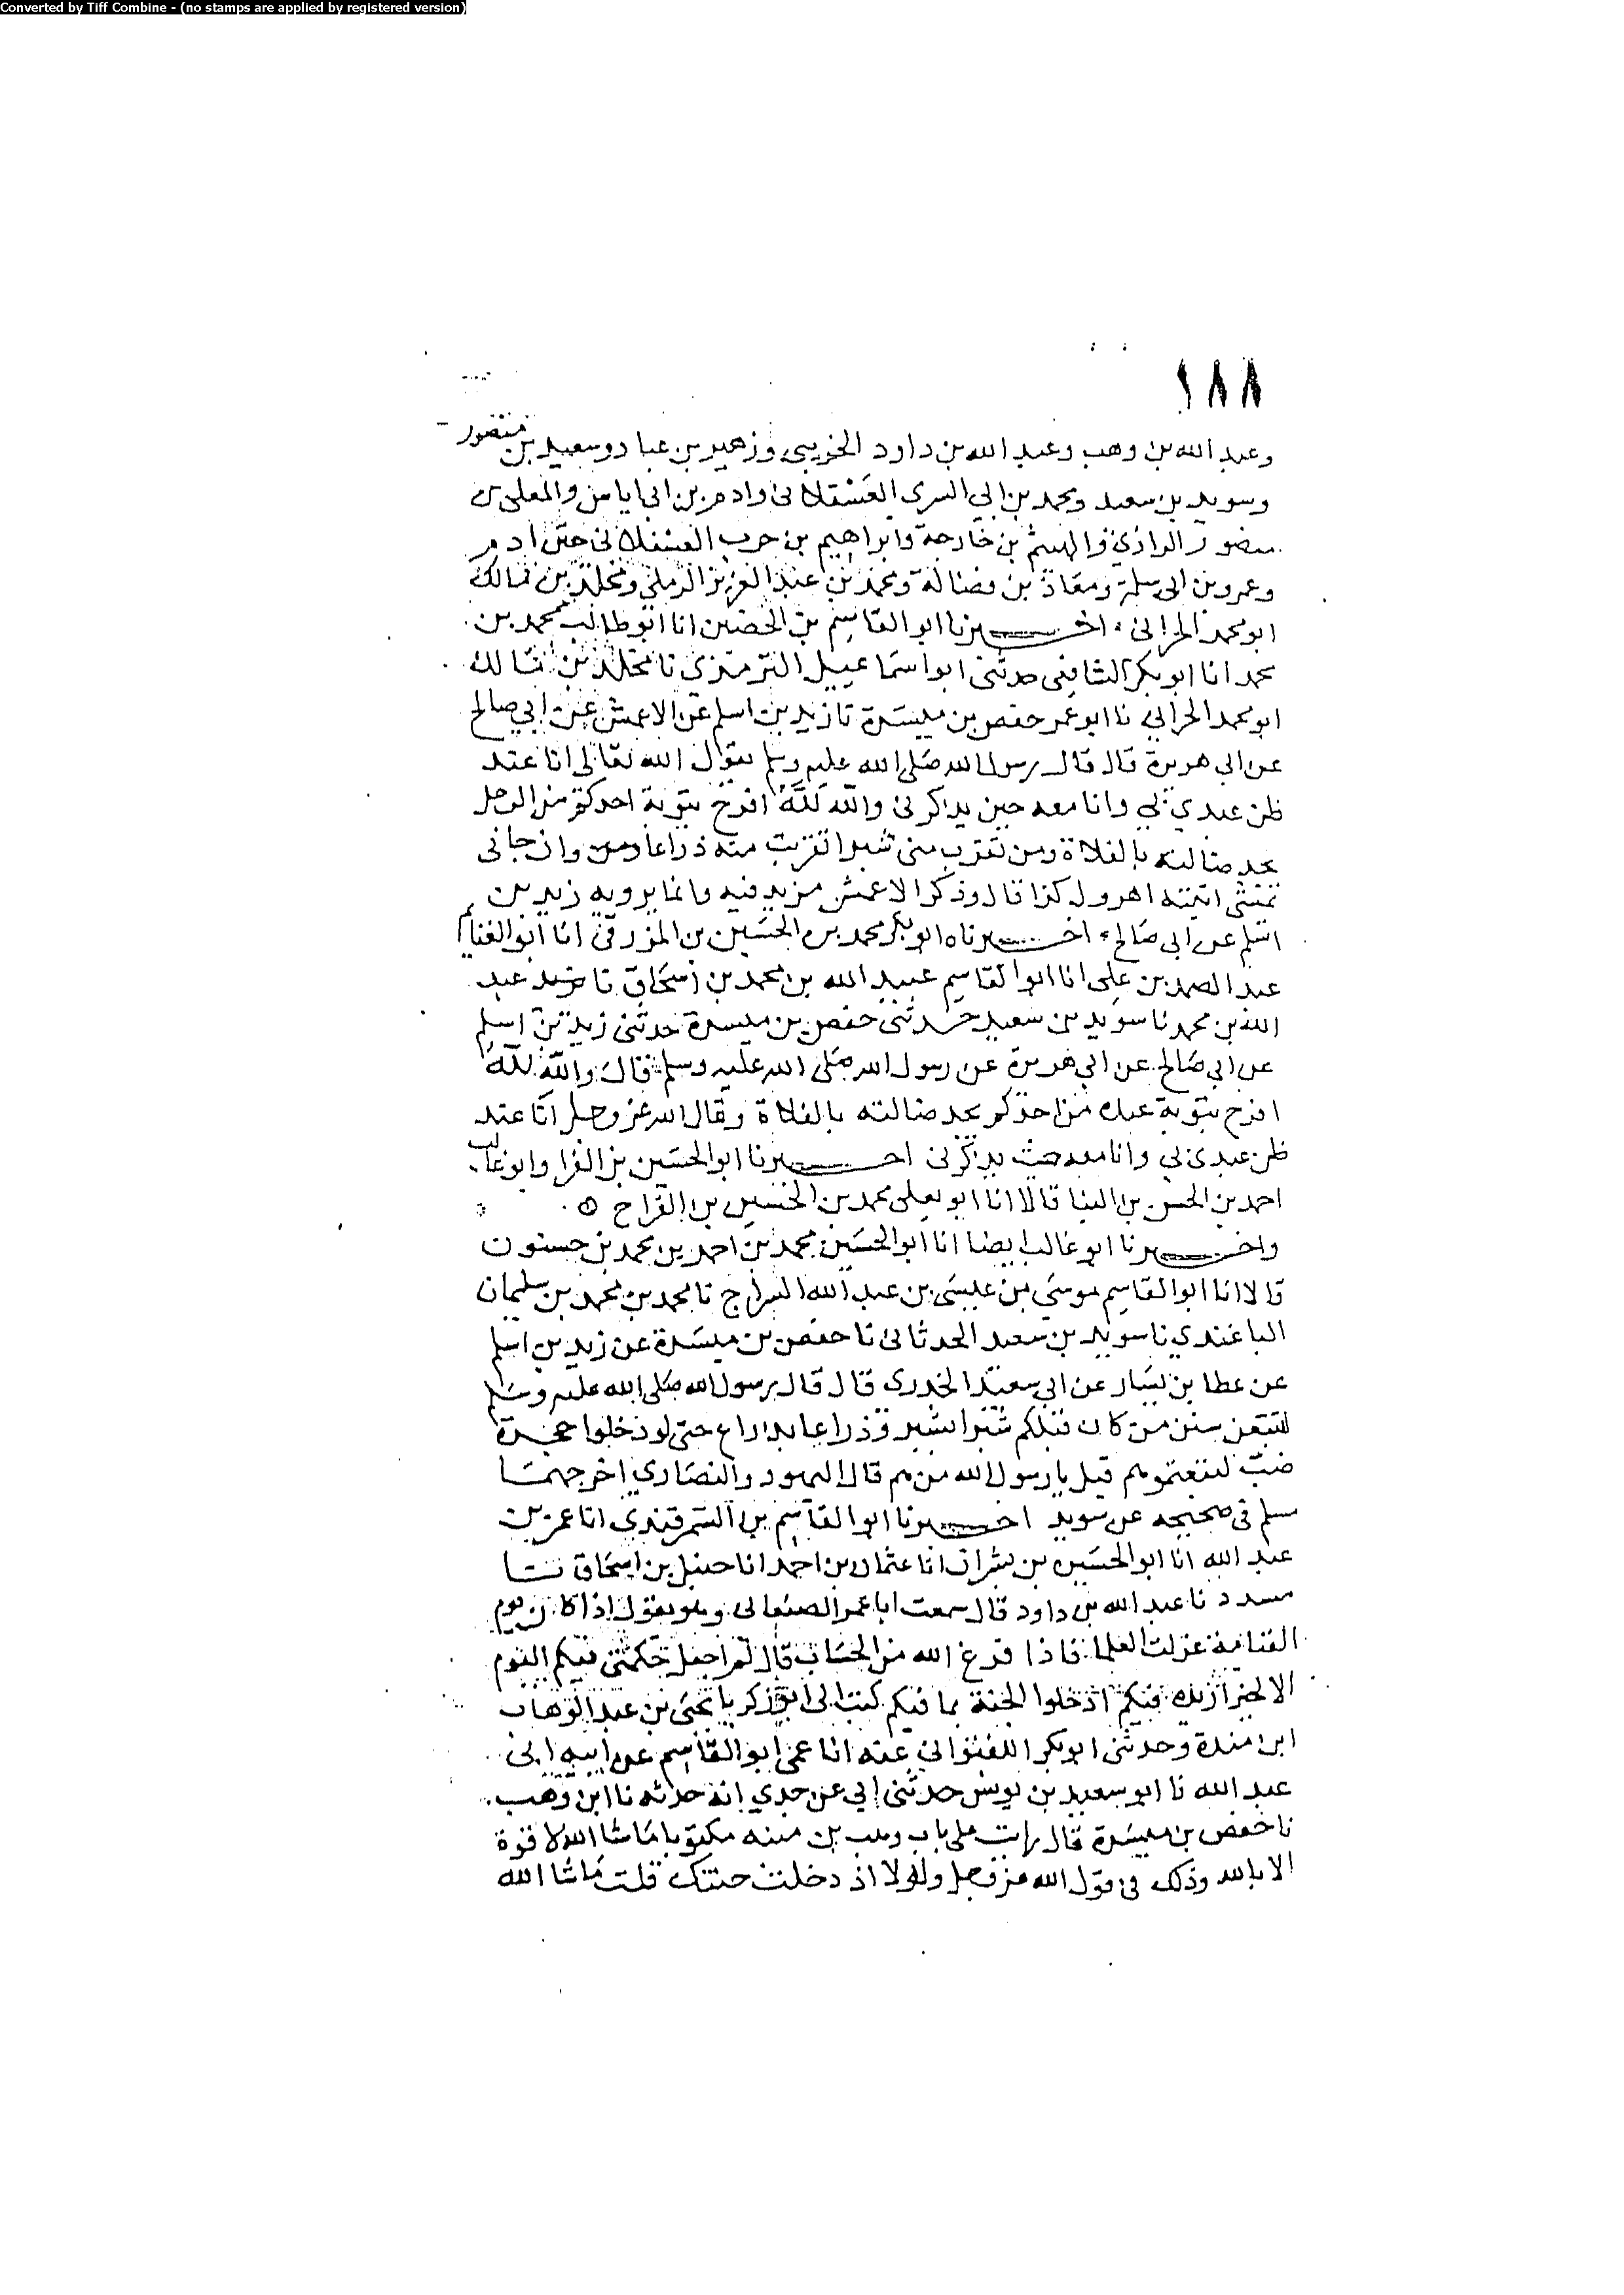 Converted by Tiff Combine - (no stamps are applied by registered version)
١٨٨
وعبد الله بن وهب وعبد الله بن داود الخريبي وزهير بن عباد وسعيد بن منصور
وسويد بن سعيد ومحمد بن ابي السري العسقلاني وادم بن ابي اياس والمعلى بن
منصور الرازي والهيثم بن خارجة وابراهيم بن حرب العسقلاني ختن ادم
وعمرو بن ابي سلمة ومعاذ بن فضالة ومحمد بن عبد العزيز الرملي ومخلد بن مالك
ابو محمد الحراني اخبرنا ابو القاسم بن الحصين انا ابو طالب محمد بن
محمد انا ابو بكر الشافعي حدثني ابو اسماعيل الترمذي نا مخلد بن مالك
ابو محمد الحراني نا ابو عمر حفص بن ميسرة نا زيد بن اسلم عن الاعمش عن ابي صالح
عن ابي هريرة قال قال رسول الله صلى الله عليه وسلم يقول الله تعالى انا عند
ظن عبدي بي وانا معه حين يذكرني والله لله افرح بتوبة احدكم من الرجل
يجد ضالته بالفلاة ومن تقرب مني شبرا تقربت منه ذراعا وان جاني
يمشي اتيته اهرول كذا قال وذكر الاعمش مزيد فيه وانما يرويه زيد بن
اسلم عن ابي صالح اخبرناه ابو بكر محمد بن الحسين بن المزرفي انا ابو الغنائم
عبد الصمد بن علي انا ابو القاسم عبيد الله بن محمد بن اسحاق نا عبد
الله بن محمد نا سويد بن سعيد حدثني حفص بن ميسرة حدثني زيد بن اسلم
عن ابي صالح عن ابي هريرة عن رسول الله صلى الله عليه وسلم قال والله لله
افرح بتوبة عبده من احدكم يجد ضالته بالفلاة وقال الله عز وجل انا عند
ظن عبدي بي وانا معه حيث يذكرني اخبرنا ابو الحسين بن الفرا وابو غالب
احمد بن الحسن بن البنا قالا انا ابو يعلى محمد بن الحسين بن الفرا ح
واخبرنا ابو غالب ايضا انا ابو الحسين محمد بن احمد بن محمد بن حسنون
قالا انا ابو القاسم موسى بن عيسى بن عبد الله السراج نا محمد بن محمد بن سليمان
الباغندي نا سويد بن سعيد الحدثاني نا حفص بن ميسرة عن زيد بن اسلم
عن عطا بن يسار عن ابي سعيد الخدري قال قال رسول الله صلى الله عليه وسلم
لتتبعن سنن من كان قبلكم شبرا بشبر وذراعا بذراع حتى لو دخلوا جحر
ضب لتبعتموهم قيل يا رسول الله من هم قال اليهود والنصاري اخرجهما
مسلم في صحيحه عن سويد اخبرنا ابو القاسم بن السمرقندي انا عمر بن
عبد الله انا ابو الحسين بن بشران انا عثمان بن احمد انا حنبل بن اسحاق نا
مسدد نا عبد الله بن داود قال سمعت ابا عمر الصنعاني وهو يقول اذا كان يوم
القيامة عزلت العلما فاذا فرغ الله من الحساب قال لم اجعل حكمتي فيكم اليوم
الا لخير اريده فيكم ادخلوا الجنة بما فيكم كتب الي ابو زكريا يحيى بن عبد الوهاب
ابن مندة وحدثني ابو بكر اللفتواني عنه انا عمي ابو القاسم عن ابيه ابي
عبد الله نا ابو سعيد بن يونس حدثني ابي عن جدي انه حدثه نا ابن وهب
نا حفص بن ميسرة قال رايت على باب وهب بن منبه مكتوبا ما شا الله لا قوة
الا بالله وذلك في قول الله عز وجل ولولا اذ دخلت جنتك قلت ما شا الله